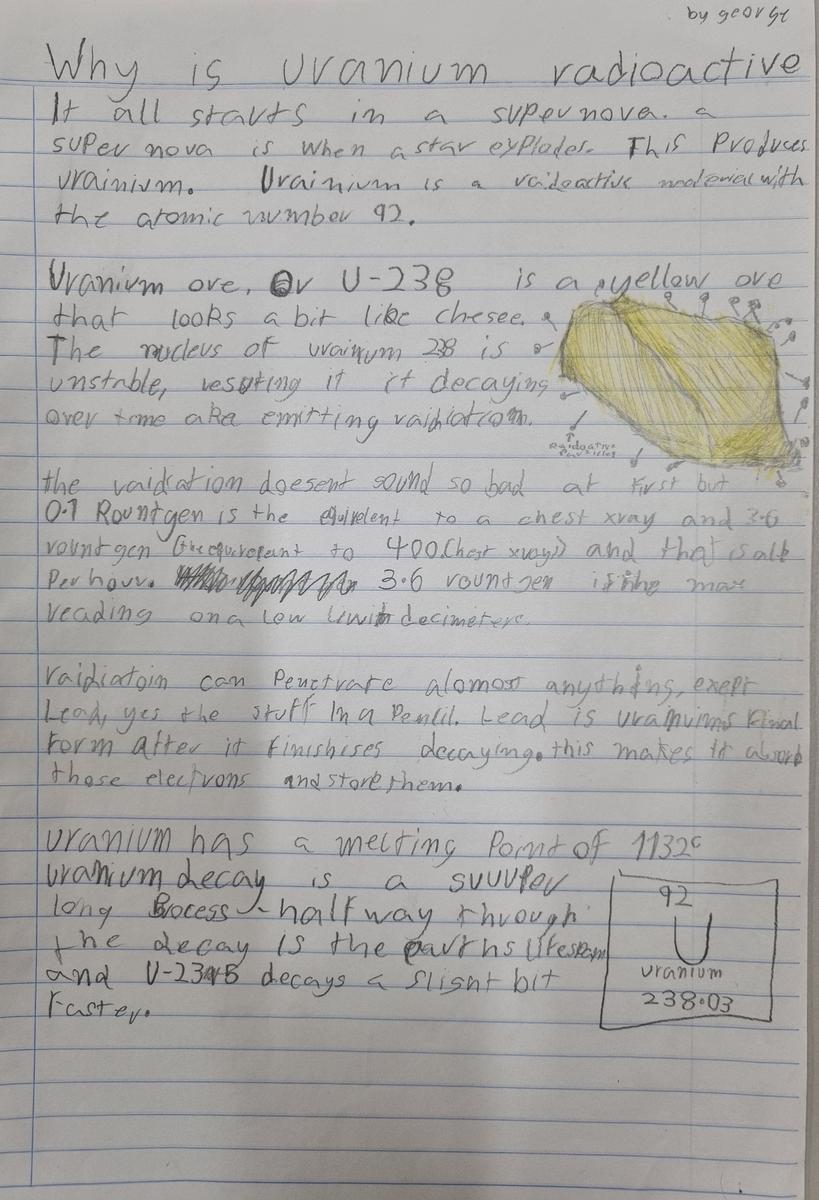 by george
Why is uranium radioactive
It all starts in a supernova. a
super nova is when a star explodes. This Produces
urainium. Urainium is a raidoactive material with
the atomic number 92.
Uranium ore, Or U-238 is a yellow ore
that looks a bit like chesee.
The nucleus of urainum 238 is
unstable, resulting it it decaying
over time aka emitting raidiatiom.
Raidoative
Particles
the raidiation doesent sound so bad at first but
0.1 Rountgen is the equivelent to a chest xray and 3.6
rountgen (the equivelant to 400 Chest xrays) and that is all
Per hour. 3.6 rountgen is the max
reading on a low limit decimeters.
raidiatoin can Penetrate alomost anything, exept
Lead, yes the stuff In a Pencil. Lead is uraniums Final
Form after it finishises decaying. this makes it absorb
those electrons and store them.
uranium has a melting Point of 1132c
uranium decay is a suuuper
long Process - half way through
the decay is the earths lifespan
and U-235 decays a slight bit
Faster.
92
U
uranium
238.03